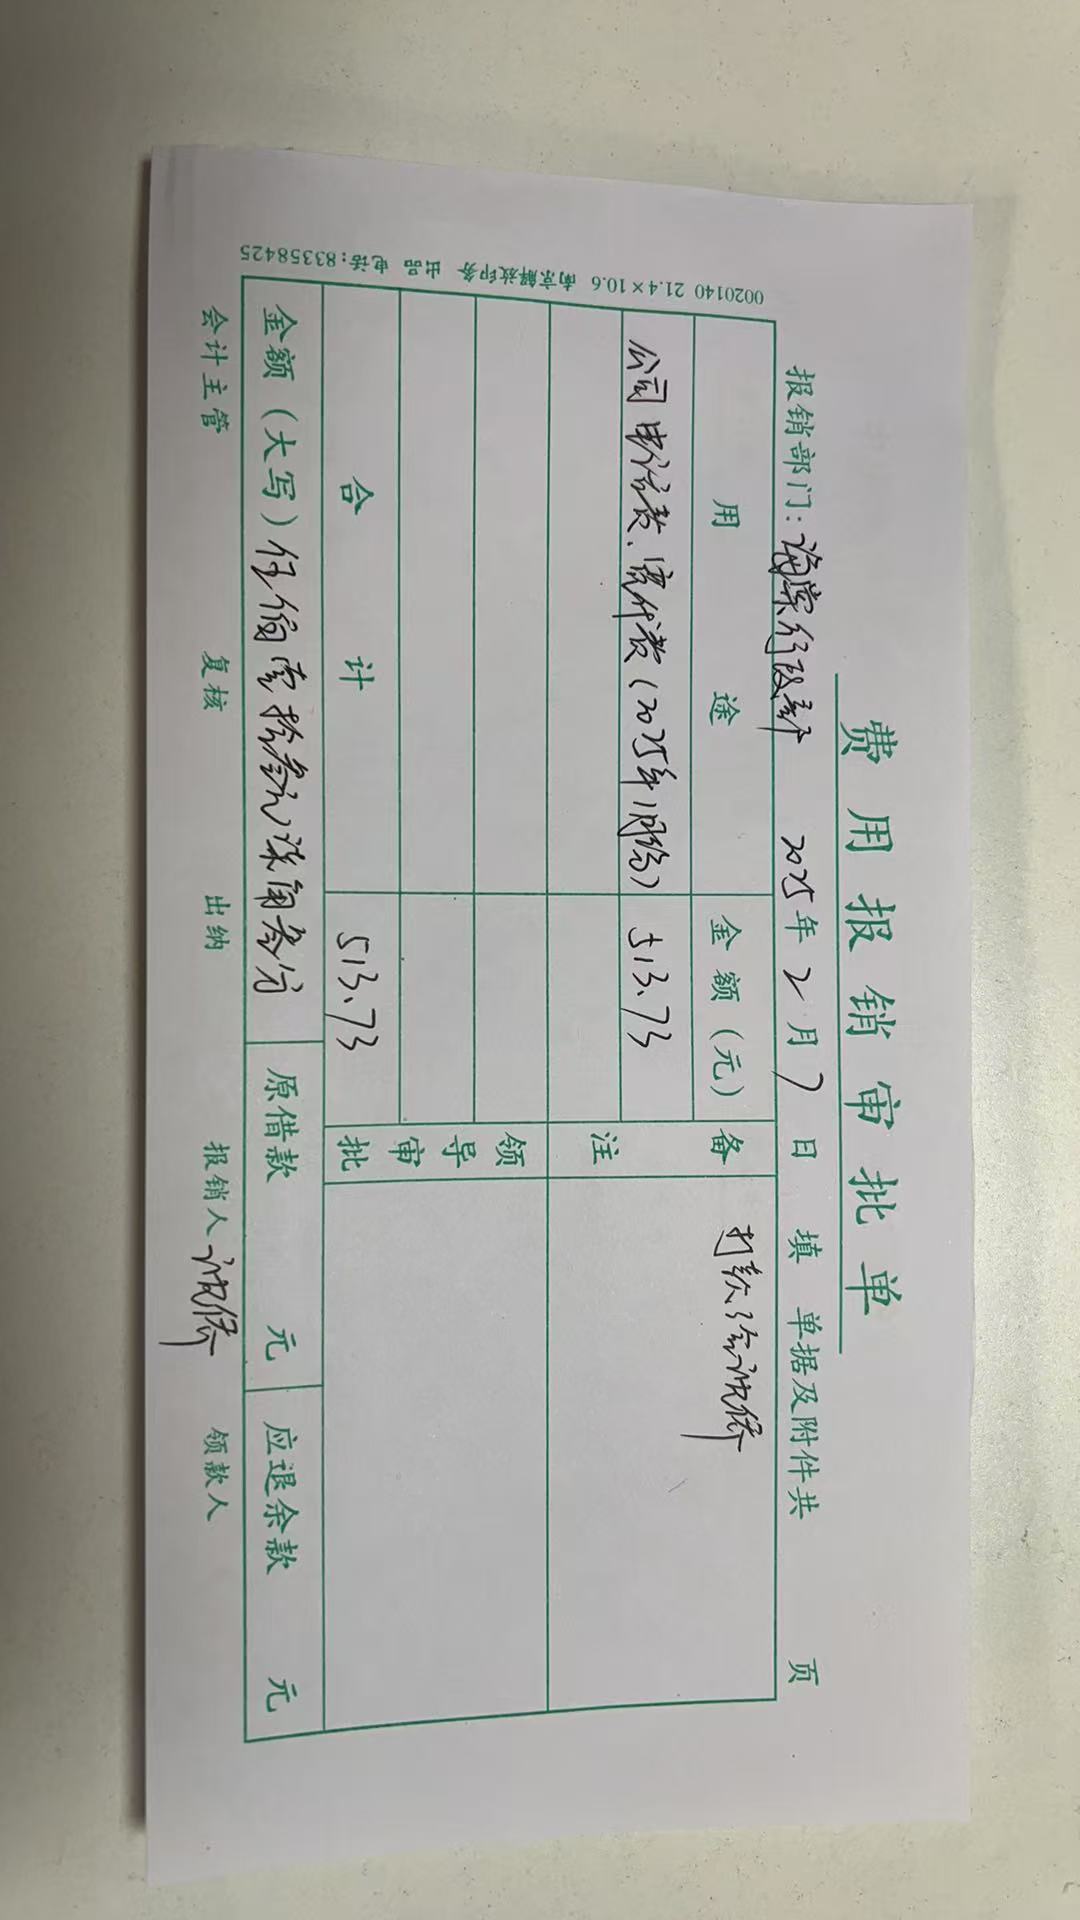 费用报销审批单
报销部门：海棠行政部 2025年2月7日填 单据及附件共 页
用途 金额（元） 备注 打款给沈侨
公司电话费、宽带费（2025年1月份） 513.73
领导审批
合计 513.73
金额（大写）伍佰壹拾叁元柒角叁分 原借款 元 应退余款 元
会计主管 复核 出纳 报销人 沈侨 领款人
0020140 21.4×10.6 南京解放印务 出品 电话：83358425